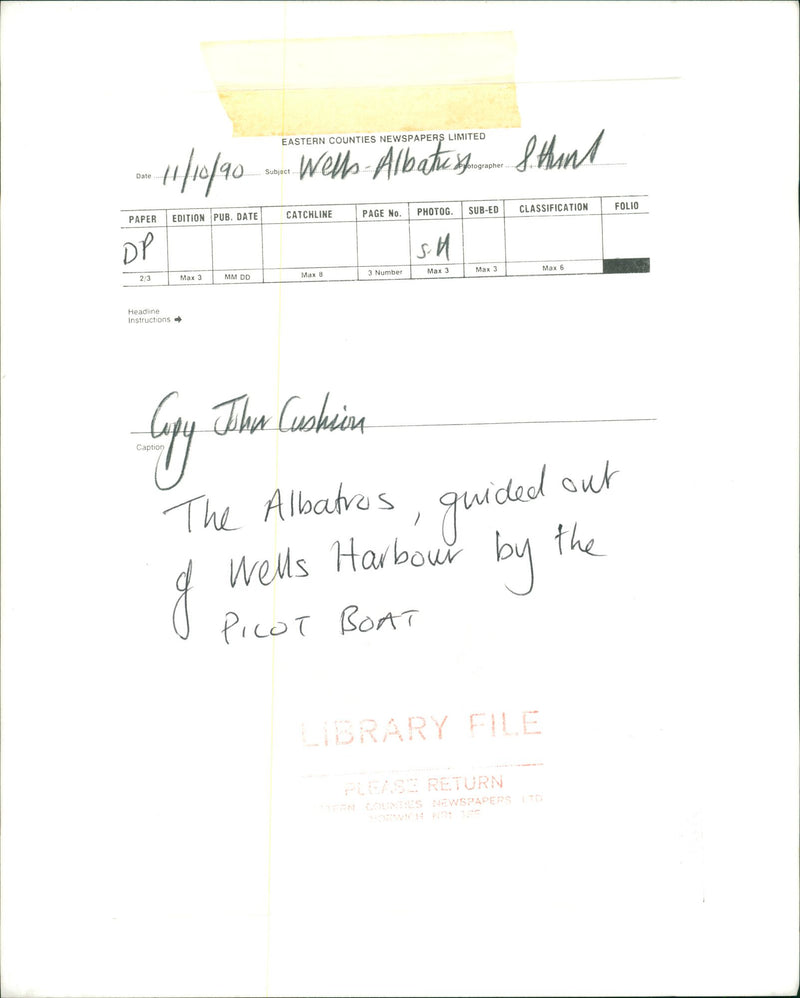 EASTERN COUNTIES NEWSPAPERS LIMITED
Date 11/10/90 Subject Wells-Albatross Photographer S Hunt
PAPER EDITION PUB. DATE CATCHLINE PAGE No. PHOTOG. SUB-ED CLASSIFICATION FOLIO
DP S.H
2/3 Max 3 MM DD Max 8 3 Number Max 3 Max 3 Max 6
Headline
Instructions ➔
Copy John Cushion
Caption
The Albatros, guided out
of Wells Harbour by the
PILOT BOAT
LIBRARY FILE
PLEASE RETURN
COUNTIES NEWSPAPERS LTD
NORWICH NR1